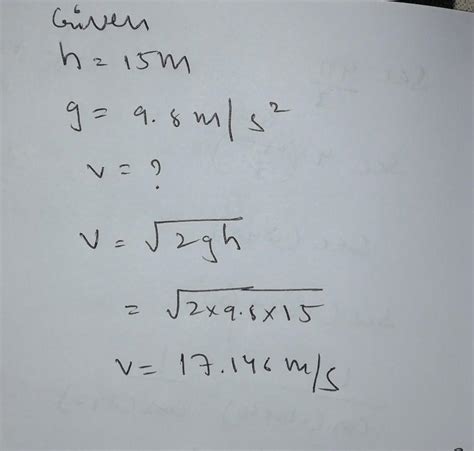 Given
h = 15m
g = 9.8 m/s²
v = ?
v = √2gh
= √2×9.8×15
v = 17.146 m/s